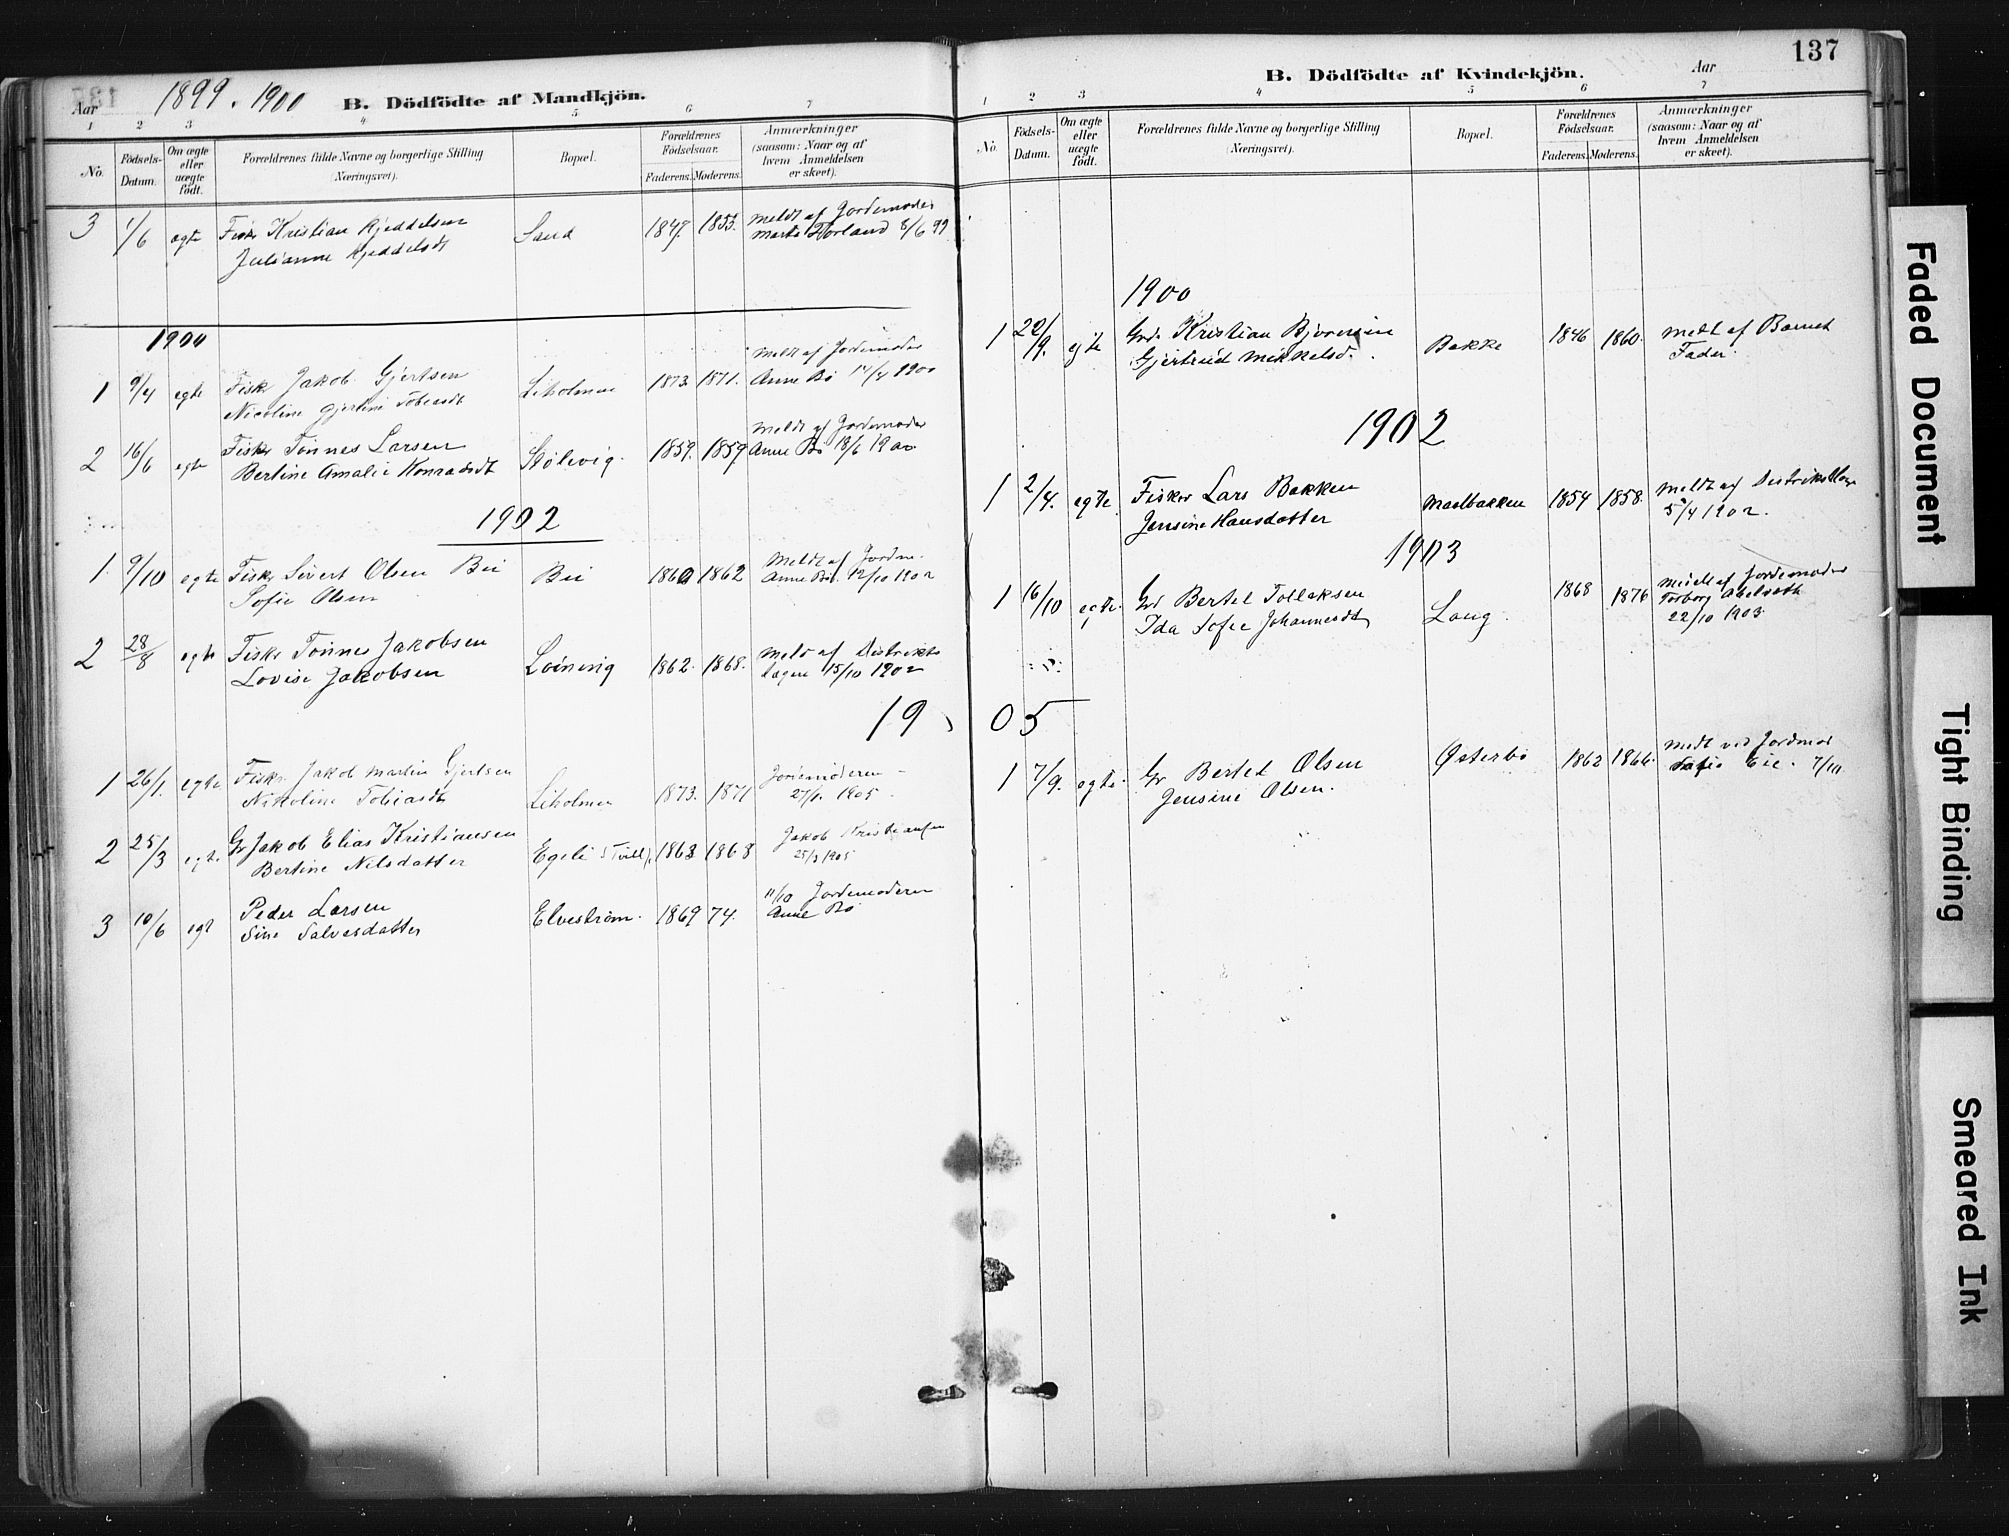 Aar 1899. 1900 B. Dödfödte af Mandkjön.
1 2 3 4 5 6 7
No. Födsels-Datum. Om ægte eller uægte födt. Forældrenes fulde Navne og borgerlige Stilling (Næringsvei). Bopæl. Forældrenes Födselsaar. Faderens. Moderens. Anmærkninger (saasom: Naar og af hvem Anmeldelsen er skeet).
3 1/6 ægte Fisker Kristian Kjeddelsen Sand 1847. 1855. Meldt af Jordemoder
Julianne Kjeddelsdt Marte Torland 8/6 99
1900
1 9/4 egte Fisk Jakob Gjertsen Liholmen 1873 1871. Meldt af Jordemoder
Nicoline Gjertine Tobiasdt Anne Bö 14/4 1900
2 16/6 egte Fisker Tönnes Larsen Stölevig. 1859. 1859 Meldt af Jordemoder
Bertine Amalie Konradsdt Anne Bö 18/6 1900
1902
1. 9/10 egte Fisker Sivert Olsen Bii Bii 1860 1862 Meldt af Jordm.
Sofie Olsen Anne Bö. 12/10 1902
2 28/8 egte Fisker Tönnes Jakobsen 1862. 1868. Meldt af Distrikts
Lovise Jakobsen lægen 15/10 1902
1905
1 26/1 egte Fisker Jakob Martin Gjertsen Liholmen 1873. 1871 Jordemoderen
Nikoline Tobiasdt 27/1. 1905.
2 25/3 egte Gr Jakob Elias Kristiansen Egeli (Tvill) 1863 1868 Jakob Kristiansen
Bertine Nilsdatter 25/3 1905
3 10/6 egt Peder Larsen Elvestrøm. 1869 74. 11/10 Jordemoderen
Sine Salvesdatter Anne Bö
137
B. Dödfödte af Kvindekjön. Aar
1 2 3 4 5 6 7
No. Födsels-Datum. Om ægte eller uægte födt. Forældrenes fulde Navne og borgerlige Stilling (Næringsvei). Bopæl. Forældrenes Födselsaar. Faderens. Moderens. Anmærkninger (saasom: Naar og af hvem Anmeldelsen er skeet).
1900
1 22/9. egte Grd. Kristian Bjornsen Bakke 1846 1860. Meldt af Barnets
Gjertrud Mikkelsd. Fader.
1902
1 2/4. egte Fisker Lars Bakken Maalbakken 1854 1858. Meldt af Distriktslæge
Jensine Hansdatter 5/4 1902.
1903
1 16/10 egte. Gr Bertel Tollaksen Laug. 1868 1876 Meldt af Jordemoder
Ida Sofie Johannesdt Torborg Abelseth
22/10 1903
1 7/9. egte. Gr Bertel Olsen Østerbö 1862 1866. Meldt ved Jordmor
Jensine Olsen. Sofie Eie. 7/10
Faded Document
Tight Binding
Smeared Ink